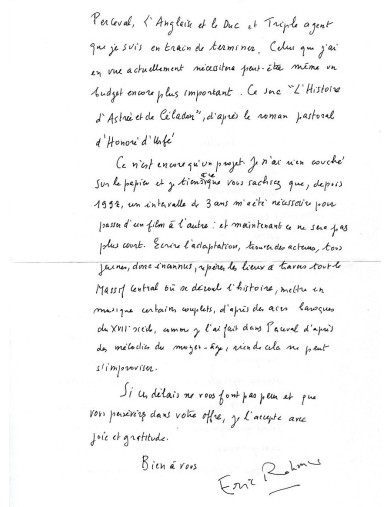 Perceval, L'Anglaise et le Duc et Triple agent
que je suis en train de terminer. Celui que j'ai
en vue actuellement nécessitera peut-être même un
budget encore plus important. Ce sera "L'Histoire
d'Astrée et de Céladon", d'après le roman pastoral
d'Honoré d'Urfé
Ce n'est encore qu'un projet. Je n'ai rien couché
sur le papier et je tiens à ce que vous sachiez que, depuis
1992, un intervalle de 3 ans m'a été nécessaire pour
passer d'un film à l'autre : et maintenant ce ne sera pas
plus court. Ecrire l'adaptation, trouver des acteurs, tous
jeunes, donc inconnus, repérer les lieux à travers tout le
Massif Central où se déroule l'histoire, mettre en
musique certains couplets, d'après des airs baroques
du XVIIe siècle, comme je l'ai fait dans Perceval d'après
des mélodies du moyen-âge, rien de cela ne peut
s'improviser.
Si ces délais ne vous font pas peur et que
vous persévérez dans votre offre, je l'accepte avec
joie et gratitude.
Bien à vous
Eric Rohmer